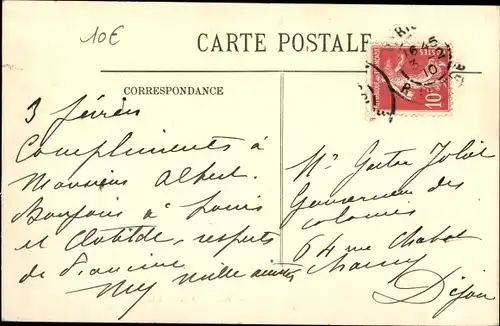 10€
CARTE POSTALE
CORRESPONDANCE
3 février
Compliments à
Monsieur Albert.
Bonjour à Louis
et Clotilde, respects
de
mille amitiés
10
POSTES
Mr Joliet
Gouverneur des
colonies
64 rue Chabot
Charny
Dijon